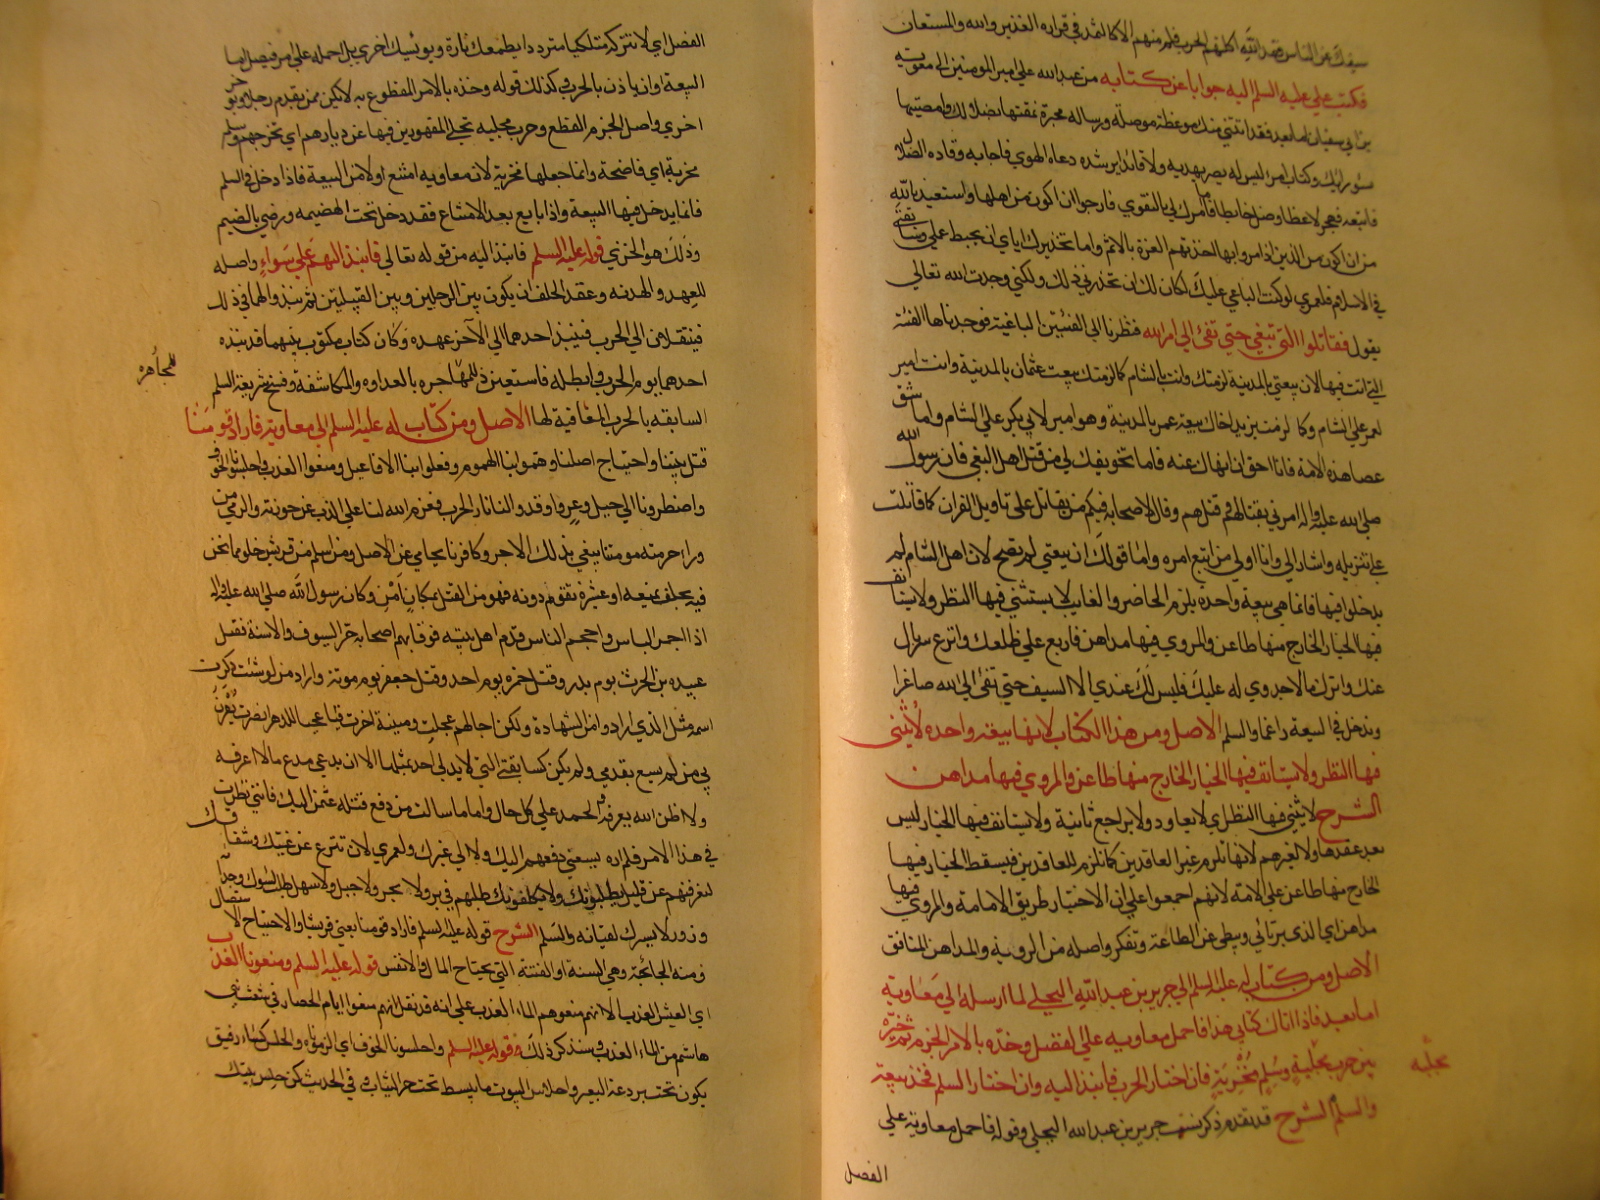 سيفك عن الناس فقد الله اكلتهم الحرب فلم منهم الا كالثمد في قراره الغدير والله والمستعان
فكتب علي عليه السلم اليه جوابا عن كتابه من عبد الله علي امير المومنين الى معويه
بن ابي سفيان اما بعد فقد اتتني منك موعظة موصلة ورساله محبرة نمقتها بضلالك وامضيتها
بسوء رايك وكتاب امرئ ليس له بصر يهديه ولا قائد يرشده دعاه الهوي فاجابه وقاده الضلال
فاتبعه فهجر لاغطا وضل خابطا فاما امرك لي بالتقوي فارجوا ان اكون من اهلها واستعيذ بالله
من ان اكون من الذين اذا امروا بها اخذتهم العزة بالاثم واما تحذيرك اياي ان يحبط عملي وسابقتي
في الاسلام فلعمري لو كنت الباغي عليك لكان لك ان تحذرني ذلك ولكني وجدت الله تعالي
يقول فقاتلوا التي تبغي حتي تفئ الي امر الله فنظرنا الي الفئتين الباغية فوجدناها الفئة
التي انت فيها لان بيعتي بالمدينة لزمتك وانت بالشام كما لزمتك بيعت عثمان بالمدينة وانت امير
لعمر علي الشام وكما لزمت يزيد اخاك بيعة عمر بالمدينة وهو امير لابي بكر علي الشام واما شق
عصا هذه الامة فانا احق ان انهاك عنه فاما تخويفك لي من قتل اهل البغي فان رسول الله
صلي الله عليه واله امرني بقتالهم وقتلهم وقال لاصحابه فيكم من يقاتل علي تاويل القران كما قاتلت
علي تنزيله واشار الي وانا اولي من اتبع امره واما قولك ان بيعتي لم تصح لان اهل الشام لم
يدخلوا فيها فانما هي بيعة واحده يلزم الحاضر والغايب لا يستثني فيها النظر ولا يستانف
فيها الخيار الخارج منها طاعن والمروي فيها مداهن فاربع علي ظلعك وانزع سربال
عنك واترك ما لا جدوي له عليك فليس لك عندي الا السيف حتي تفئ الي الله صاغرا
وتدخل في البيعة راغما والسلم الاصل ومن هذا الكتاب لانها بيعة واحده لا يثنى
فيها النظر ولا يستانف فيها الخيار الخارج منها طاعن والمروي فيها مداهن
الشرح لا يثني فيها النظر اي لا يعاود ولا يراجع ثانية ولا يستانف فيها الخيار ليس
بعد عقدها ولا لغيرهم لانها تلزم غير العاقدين كما تلزم للعاقدين فيسقط الخيار فيها
الخارج منها طاعن علي الامة لانهم اجمعوا علي ان الاختيار طريق الامامة والمروي فيها
مداهن اي الذي يرتائي ويبطي عن الطاعة وتفكر واصله من الروية والمداهن المنافق
الاصل ومن كتاب له عليه السلم الي جرير بن عبد الله البجلي لما ارسله الي معاوية
اما بعد فاذا اتاك كتابي هذا فاحمل معاويه علي الفصل وخذه بالامر الجزم ثم خيره
بين حرب مجلية وسلم مخزية فان اختار الحرب فانبذ اليه وان اختار السلم فخذ بيعته
مجلبه
والسلم الشرح قد تقدم ذكر نسب جرير بن عبد الله البجلي وقوله فاحمل معاوية علي
الفصل
الفصل اي لا تتركه متلكيا مترددا يطمعك تارة ويوئسك اخري بل احمله علي امر فيصل اما
البيعة وان ياذن بالحرب وكذلك قوله وخذه بالامر المقطوع به لا تكن ممن يقدم رجلا ويوخر
اخري واصل الجزم القطع وحرب مجليه تجلي المقهورين فيها عن ديارهم اي تخرجهم وسلم
مخزية اي فاضحة وانما جعلها مخزية لان معاويه امتنع اولا من البيعة فاذا دخل في السلم
فانما يدخل فيها البيعة واذا بايع بعد الامتناع فقد دخل تحت الهضيمه ورضي بالضيم
وذلك هو الخزي قوله عليه السلم فانبذ اليه من قوله تعالي فانبذ اليهم علي سواء واصله
للعهد والهدنه وعقد الحلف ان يكون بين الرجلين وبين القبيلتين ثم يبدوا لهما في ذلك
فينتقلا من الي الحرب فينبذ احدهما الي الاخر عهده وكان كتاب مكتوب بينهما قد نبذه
احدهما يوم الحرب وابطله فاستعير ذلك للمهاجره بالعداوه والمكاشفة وفسخ شريعة السلم
للمجاهره
السابقه بالحرب المعاقبة لها الاصل ومن كتاب له عليه السلم الي معاوية فاراد قومنا
قتل نبينا واحتياج اصلنا وهموا بنا الهموم وفعلوا بنا الافاعيل ومنعونا العذب واحلسونا الخوف
واضطرونا الي جبل وعر واوقدوا لنا نار الحرب فعزم الله لنا علي الذب عن حوزته والرمي من
وراء حرمته مومننا يبغي بذلك الاجر وكافرنا يحامي عن الاصل ومن اسلم من قريش خلو مما نحن
فيه بحلف يمنعه او عشيرة تقوم دونه فهو من القتل بمكان امن وكان رسول الله صلي الله عليه واله
اذا احمر الباس واحجم الناس قدم اهل بيته فوقا بهم اصحابه حر السيوف والاسنة فقتل
عبيده بن الحرث يوم بدر وقتل حمزه يوم احد وقتل جعفر يوم موتة واراد من لو شئت ذكرت
اسمه مثل الذي ارادوا من الشهادة ولكن اجالهم عجلت ومنيته اخرت فيا عجبا للدهر اذ صرت يقرن
بي من لم يسع بقدمي ولم يكن كسابقتي التي لا يدلي احد بمثلها الا ان يدعي مدع ما لا اعرفه
ولا اظن الله يعرفه والحمد لله علي كل حال واما ما سالت من دفع قتلة عثمن اليك فانني نظرت
في هذا الامر فلم اره يسعني دفعهم اليك ولا الي غيرك ولعمري لان تنزع عن غيك وشقاقك
لتعرفنهم عن قليل يطلبونك ولا يكلفونك طلبهم في بر ولا بحر ولا جبل ولا سهل
وزور لا يسرك لقيانه والسلم الشرح قوله عليه السلم فاراد قومنا يعني قريشا والاحتياح الاستيصال
ومنه الجائحة وهي السنة او الفتنة التي تجتاح المال والانفس قوله عليه السلم ومنعونا العذب
اي العيش العذب لا انهم منعوهم الماء العذب علي انه قد نقل انهم منعوا ايام الحصار في شعب بني
هاشم من الماء العذب وسنذكر ذلك وقوله عليه السلم واحلسونا الخوف اي الزموناه والحلس كساء رقيق
يكون تحت بردعة البعير واحلاس البيوت ما يبسط تحت حر الثياب وفي الحديث كن حلس بيتك